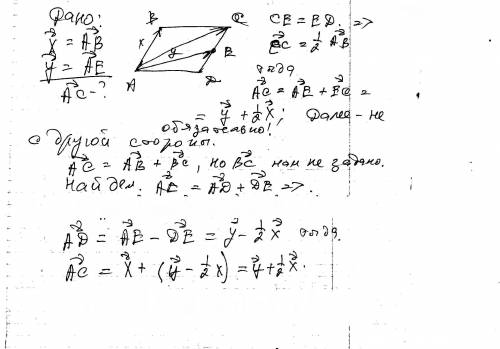 Дано:
x⃗ = AB⃗
y⃗ = AE⃗
AC⃗ - ?
B C
x y E
A D
CE = ED. =>
EC⃗ = 1/2 AB⃗
тогда
AC⃗ = AE⃗ + EC⃗ =
= y⃗ + 1/2 x⃗; Далее - не
обязательно!
С другой стороны.
AC⃗ = AB⃗ + BC⃗, но BC⃗ нам не задано.
Найдем. AE⃗ = AD⃗ + DE⃗ =>.
AD⃗ = AE⃗ - DE⃗ = y⃗ - 1/2 x⃗ тогда.
AC⃗ = x⃗ + (y⃗ - 1/2 x) = y⃗ + 1/2 x⃗.